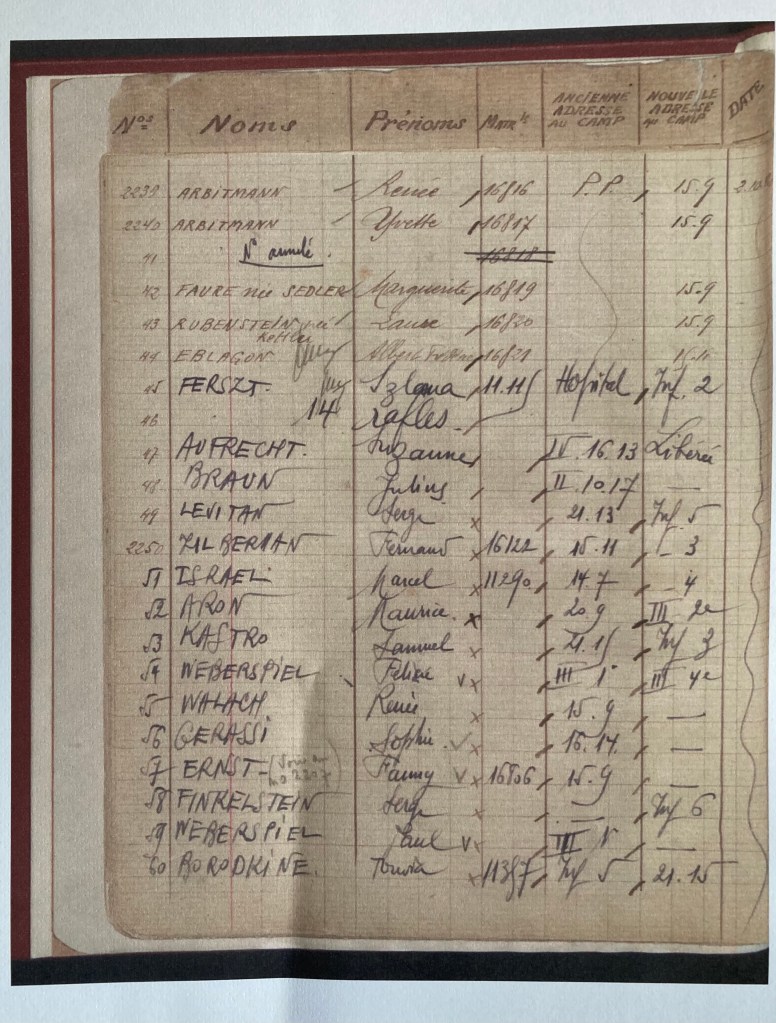 Nos Noms Prénoms Matle ANCIENNE ADRESSE AU CAMP NOUVELLE ADRESSE AU CAMP DATE
2239 ARBITMANN Renée 16816 P.P. 15.9
2240 ARBITMANN Yvette 16817 15.9
41 N° annulé. 16818
42 FAURE née SEDLER Marguerite 16819 15.9
43 RUBENSTEIN née Laure 16820 15.9
44 EBLAGON Albert 16821
45 FERSZT. Szlama 11.115 Hopital Inf. 2
46 14 rafles.
47 AUFRECHT. Suzanne IV. 16.13 Libérée
48 BRAUN Julius II. 10.17 —
49 LEVITAN Serge x 21.13 Inf. 5
2250 ZILBERMAN Fernand x 16122 15.11 - 3
51 ISRAEL Marcel x 11290 14.7 - 4
52 ARON Maurice. x 20.9 III 2e
53 KASTRO Samuel x 21.15 Inf 3
54 WEBERSPIEL Felixe v x III 1 III 4e
55 WALACH Renée x 15.9 —
56 GERASSI Sophie v x 16.14. —
57 ERNST - (Voir au no 2207) Fanny v x 16806 15.9 —
58 FINKELSTEIN Serge x — Inf 6
59 WEBERSPIEL Paul v x III 1 —
60 BORODKINE. Touvia x 11387 Inf 5 21.15